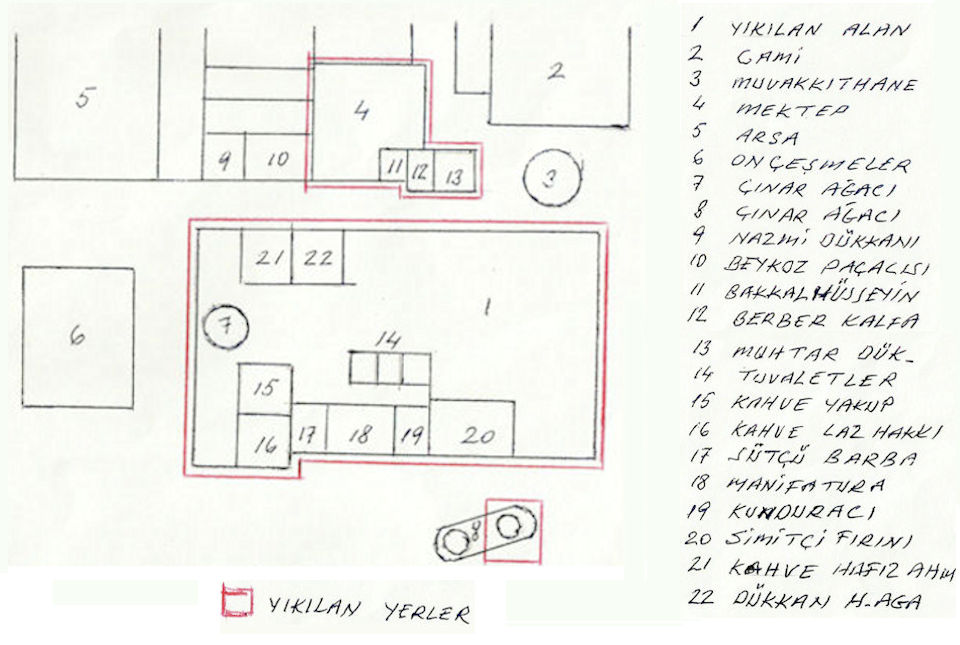 5
4
2
9
10
11
12
13
3
21
22
1
6
7
14
15
16
17
18
19
20
8
YIKILAN YERLER
1 YIKILAN ALAN
2 CAMİ
3 MUVAKKITHANE
4 MEKTEP
5 ARSA
6 ONÇEŞMELER
7 ÇINAR AĞACI
8 ÇINAR AĞACI
9 NAZMİ DÜKKANI
10 BEYKOZ PAÇACISI
11 BAKKAL HÜSSEYİN
12 BERBER KALFA
13 MUHTAR DÜK-
14 TUVALETLER
15 KAHVE YAKUP
16 KAHVE LAZ HAKKI
17 SÜTÇÜ BARBA
18 MANİFATURA
19 KUNDURACI
20 SİMİTÇİ FIRINI
21 KAHVE HAFIZ AHM
22 DÜKKAN H-AGA